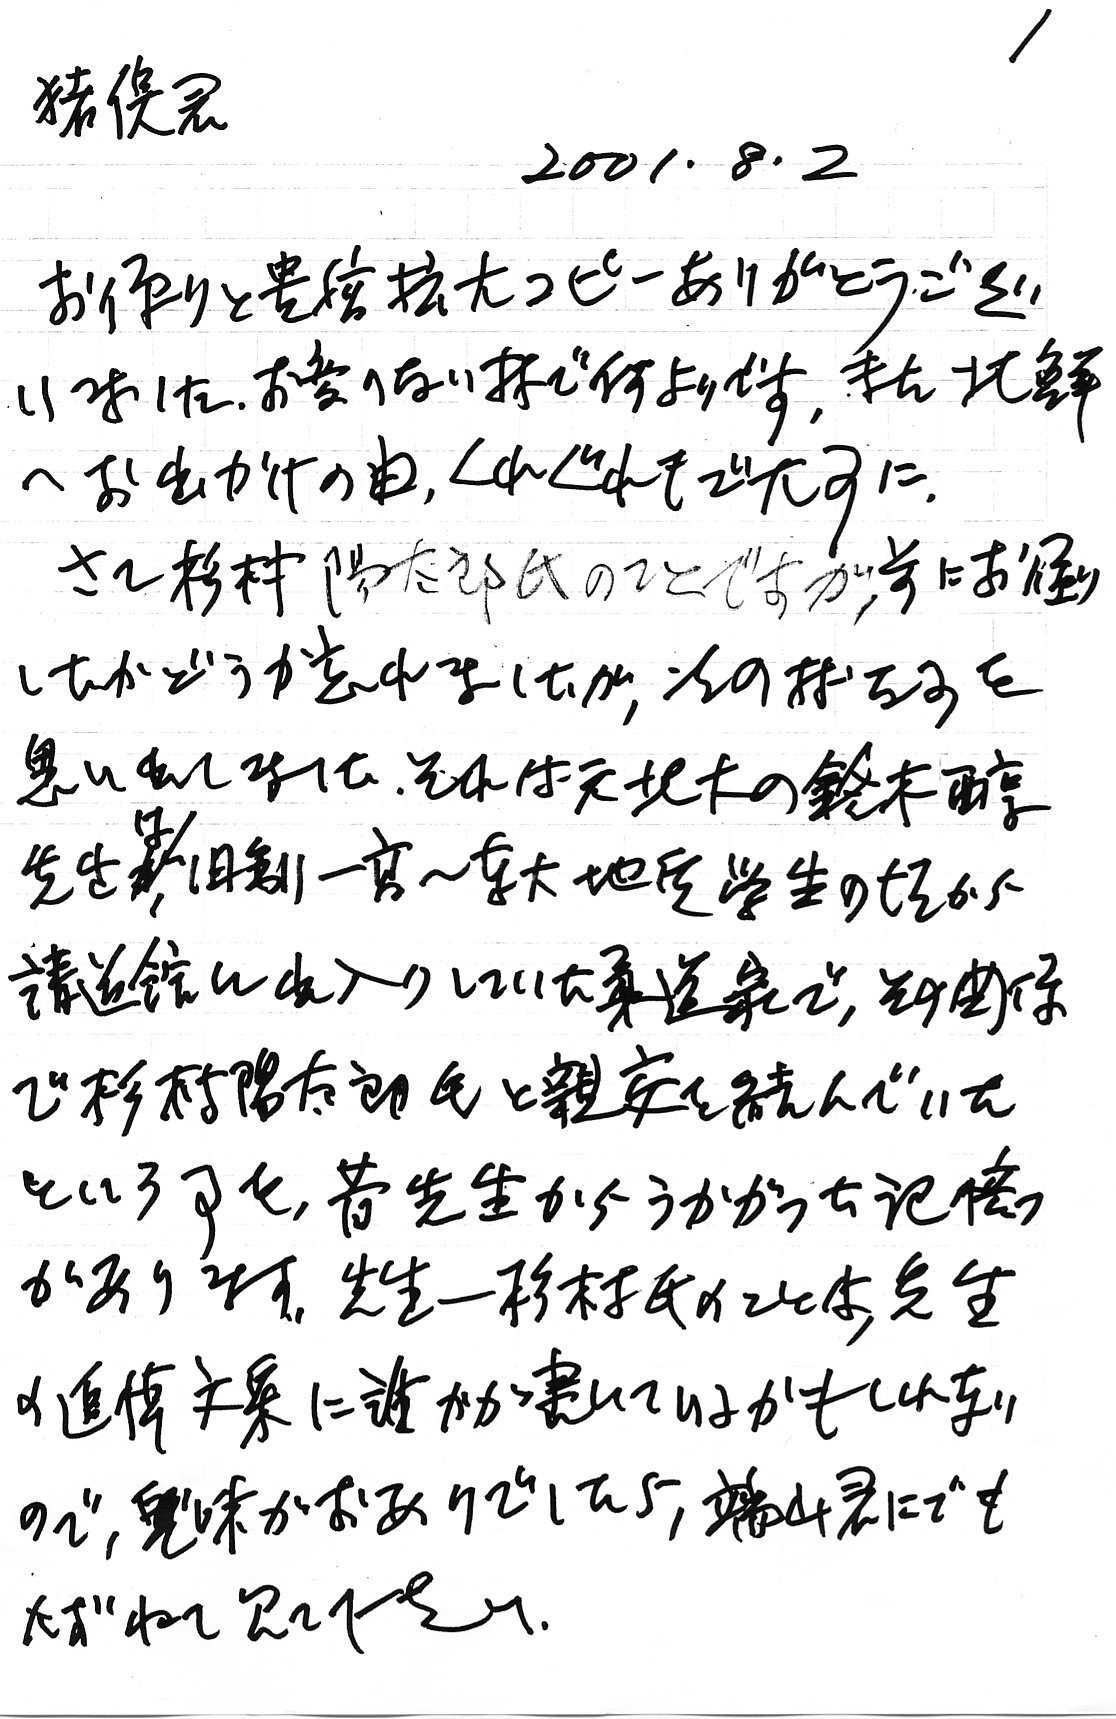 1
猪俣君
2001.8.2
お便りと貴稿拡大コピーありがとうござい
いました.お変りない様で何よりです,また北鮮
へお出かけの由,くれぐれもご大事に.
さて杉村陽太郎氏のことですが,前にお便り
したかどうか忘れましたが,次の様な事を
思い出しました.それは元北大の鈴木醇
先生は,旧制一高〜東大地質学生の頃から
講道館に出入りしていた柔道家で,その関係
で杉村陽太郎氏と親交を結んでいた
という事を,昔先生からうかがった記憶
があります.先生ー杉村氏のことは,先生
の追悼文集に誰かが書いているかもしれない
ので,興味がおありでしたら,端山君にでも
たずねて見て下さい.